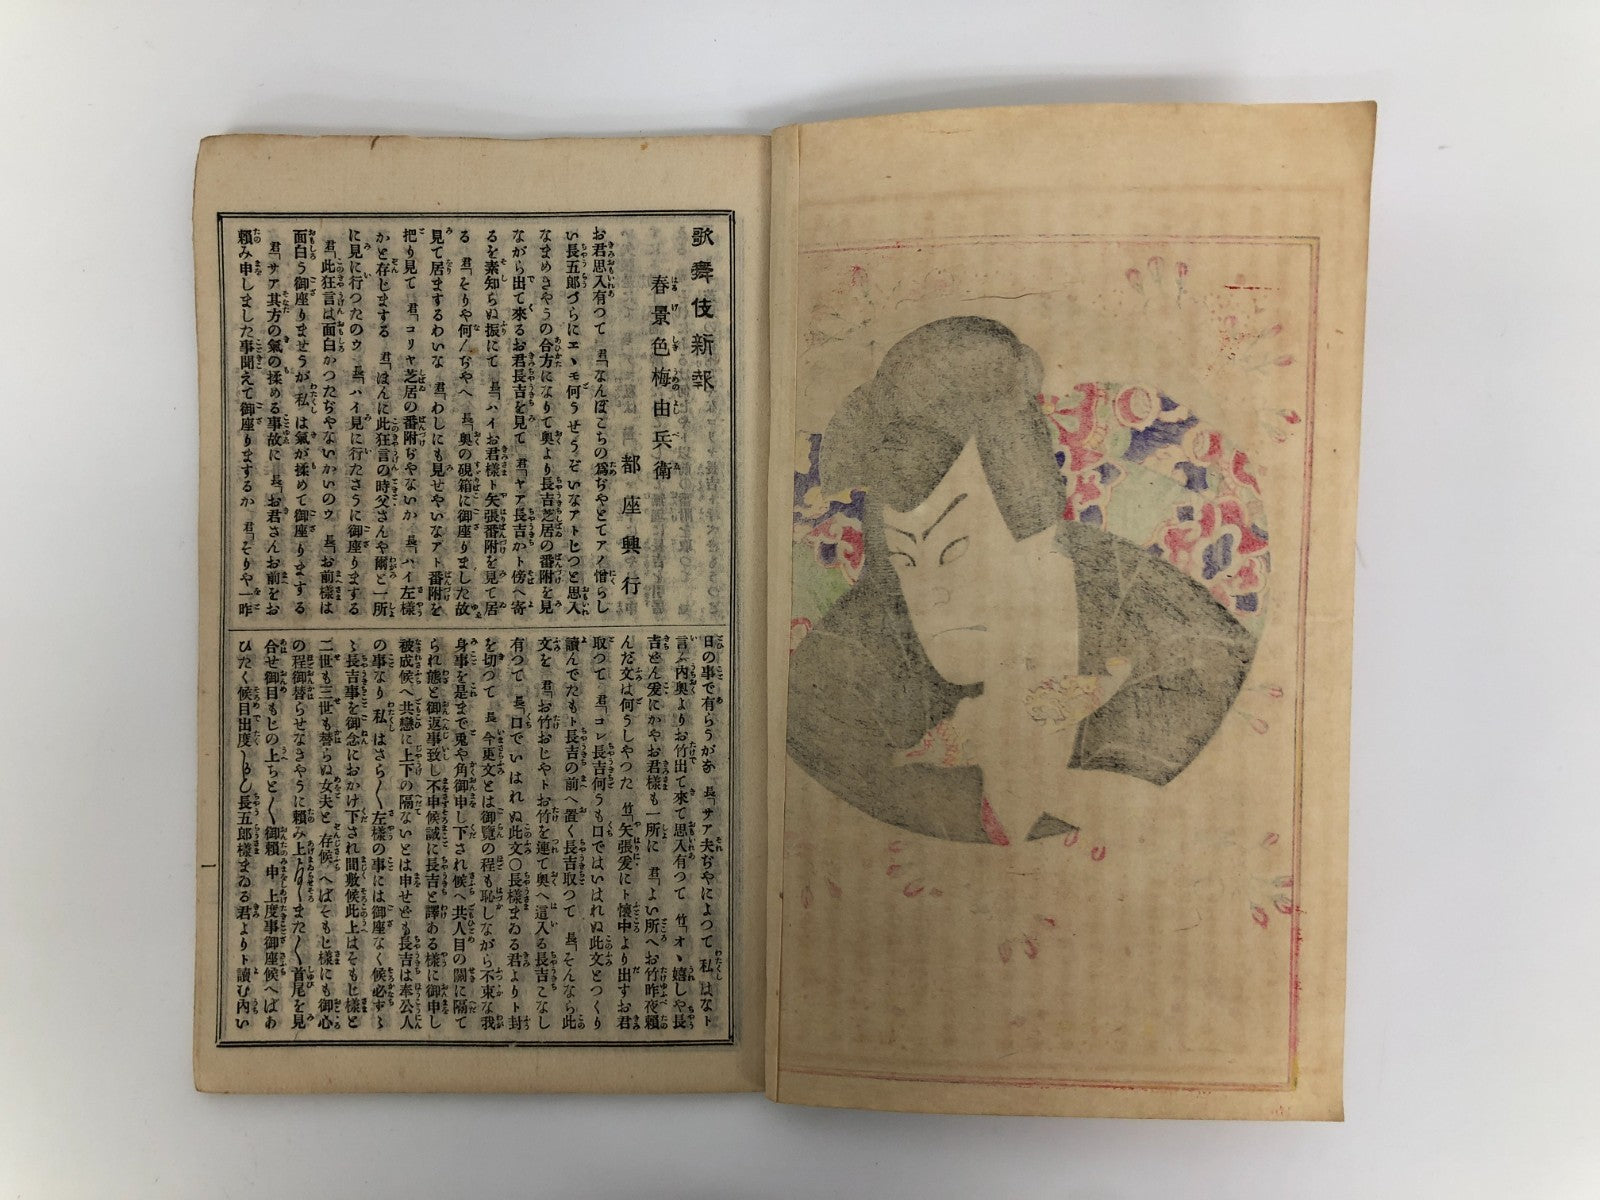 歌舞伎新報
春景色梅由兵衛
都座興行
お君思入有つて 君「なんぼこちの爲ぢやとてアノ憎らし
い長五郎づらにエヽモ何うせうぞいなアトじつと思入
なまめきやうの合方になりて奥より長吉芝居の番附を見
ながら出て來るお君長吉を見て 君「ヤア長吉かト傍へ寄
るを素知らぬ振にて 長「ハイお君様ト矢張番附を見て居
る 君「そりや何んぢやへ 長「奥の硯箱に御座りました故
見て居まするわいな 君「わしにも見せやいなアト番附を
把り見て 君「コリヤ芝居の番附ぢやないか 長「ハイ左様
かと存じまする 君「ほんに此狂言の時父さんや爾と一所
に見に行つたのウ 長「ハイ見に行たさうに御座りまする
君「此狂言は面白かつたぢやないかいのウ 長「お前様は
面白う御座りませうが私は氣が揉めて御座りまする
君「サア其方の氣の揉める事故に 長「お君さんお前をお
頼み申しました事聞えて御座りまするか 君「そりや一昨
日の事で有らうがな 長「サア夫ぢやによつて私はなト
言ふ内奥よりお竹出て來て思入有つて 竹「オヽ嬉しや長
吉どん爰にかやお君様も一所に 君「よい所へお竹昨夜頼
んだ文は何うしやつた 竹「矢張爰にト懷中より出すお君
取つて 君「コレ長吉何うも口ではいはれぬ此文とつくり
讀んでたもト長吉の前へ置く長吉取つて 長「そんなら此
文を 君「お竹おじやトお竹を連て奥へ這入る長吉こなし
有つて 長「口でいはれぬ此文〇長様まゐる君よりト封
を切つて 長「今更文とは御覽の程も恥しながら不束な我
身事を是まで兎や角御申し下され候へ共人目の關に隔て
られ態と御返事致し不申候誠に長吉と譯ある様に御申し
被成候へ共戀に上下の隔ないとは申せども長吉は奉公人
の事なり私はさら〳〵左様の事には御座なく候必ずヽ
ヽ長吉事を御念におかけ下され間敷候此上はそもじ様と
二世も三世も替らぬ女夫と存候へばそもじ様にも御心
の程御替らせなきやうに頼み上まいらせ候また〳〵首尾を見
合せ御目もじの上ちと〳〵御頼申上度事御座候へばあ
ひたく候目出度かしく長五郎様まゐる君よりト讀む内い
一